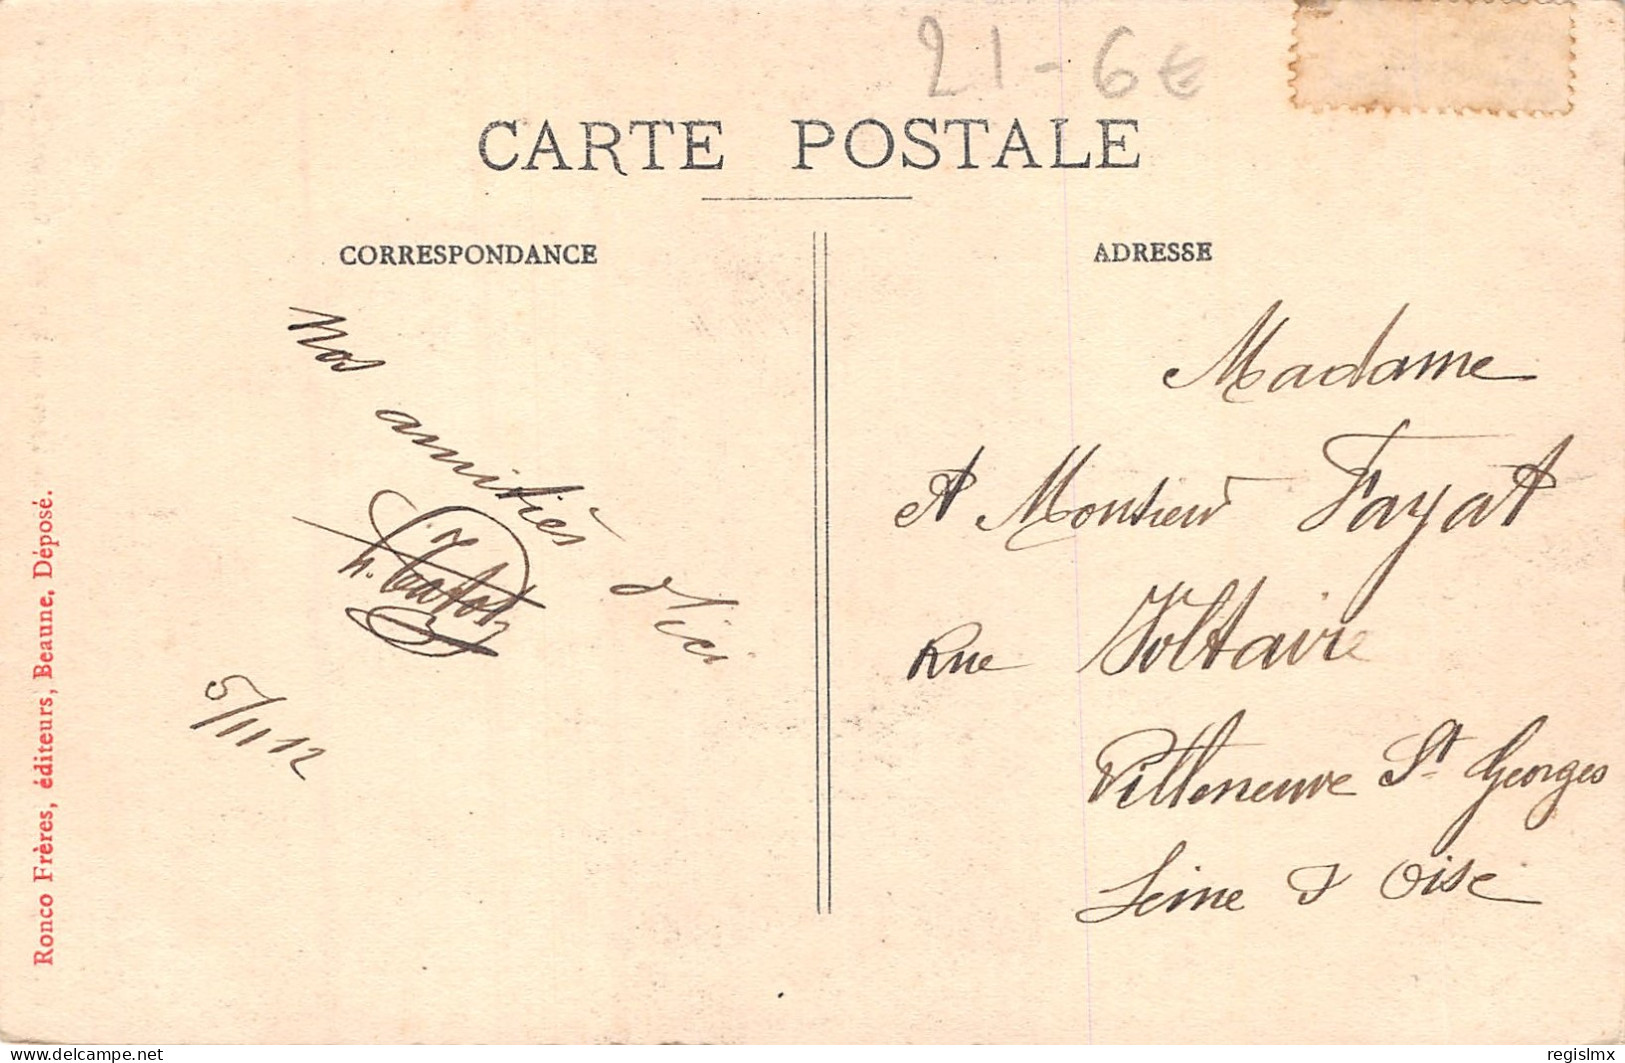 21 - 6€
CARTE POSTALE
CORRESPONDANCE
ADRESSE
Nos
amitiès
d'ici
5/11 12
Madame
et Monsieur Fayat
Rue Voltaire
Villeneuve St Georges
Seine & Oise
Ronco Frères, éditeurs, Beaune, Déposé.
delcampe.net
regislmx